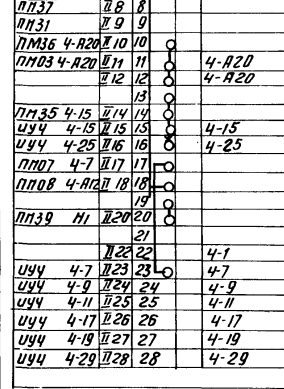 ПМ37 II 8 8
ПМ31 II 9 9
ПМ36 4-А20 II 10 10
ПМ03 4-А20 II 11 11 4-А20
II 12 12 4-А20
13
ПМ35 4-15 II 14 14
ИУ4 4-15 II 15 15 4-15
ИУ4 4-25 II 16 16 4-25
ПМ07 4-7 II 17 17
ПМ08 4-А12 II 18 18
19
ПМ39 М1 II 20 20
21
II 22 22 4-1
ИУ4 4-7 II 23 23 4-7
ИУ4 4-9 II 24 24 4-9
ИУ4 4-11 II 25 25 4-11
ИУ4 4-17 II 26 26 4-17
ИУ4 4-19 II 27 27 4-19
ИУ4 4-29 II 28 28 4-29